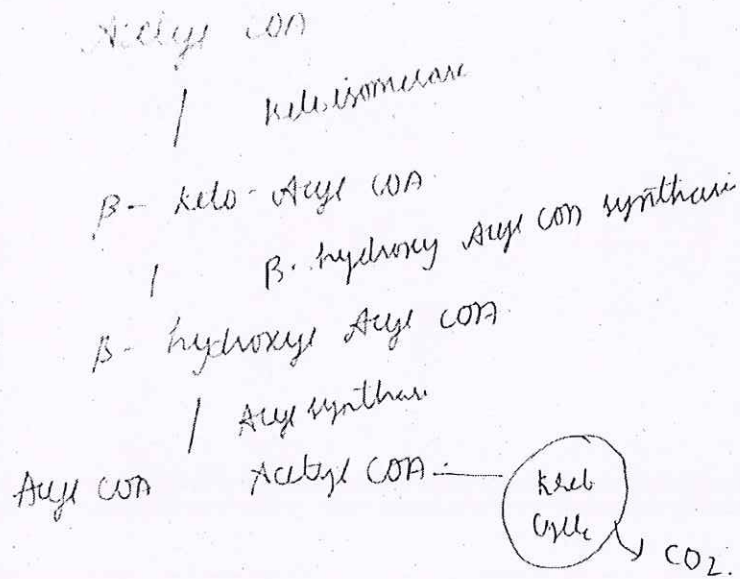 Acetyl COA
Ketoisomerase
β- keto- Acyl COA
β- hydroxy Acyl COA synthase
β- hydroxyl Acyl COA
Acyl synthase
Acyl COA Acetyl COA
Kreb
Cycle
CO2.